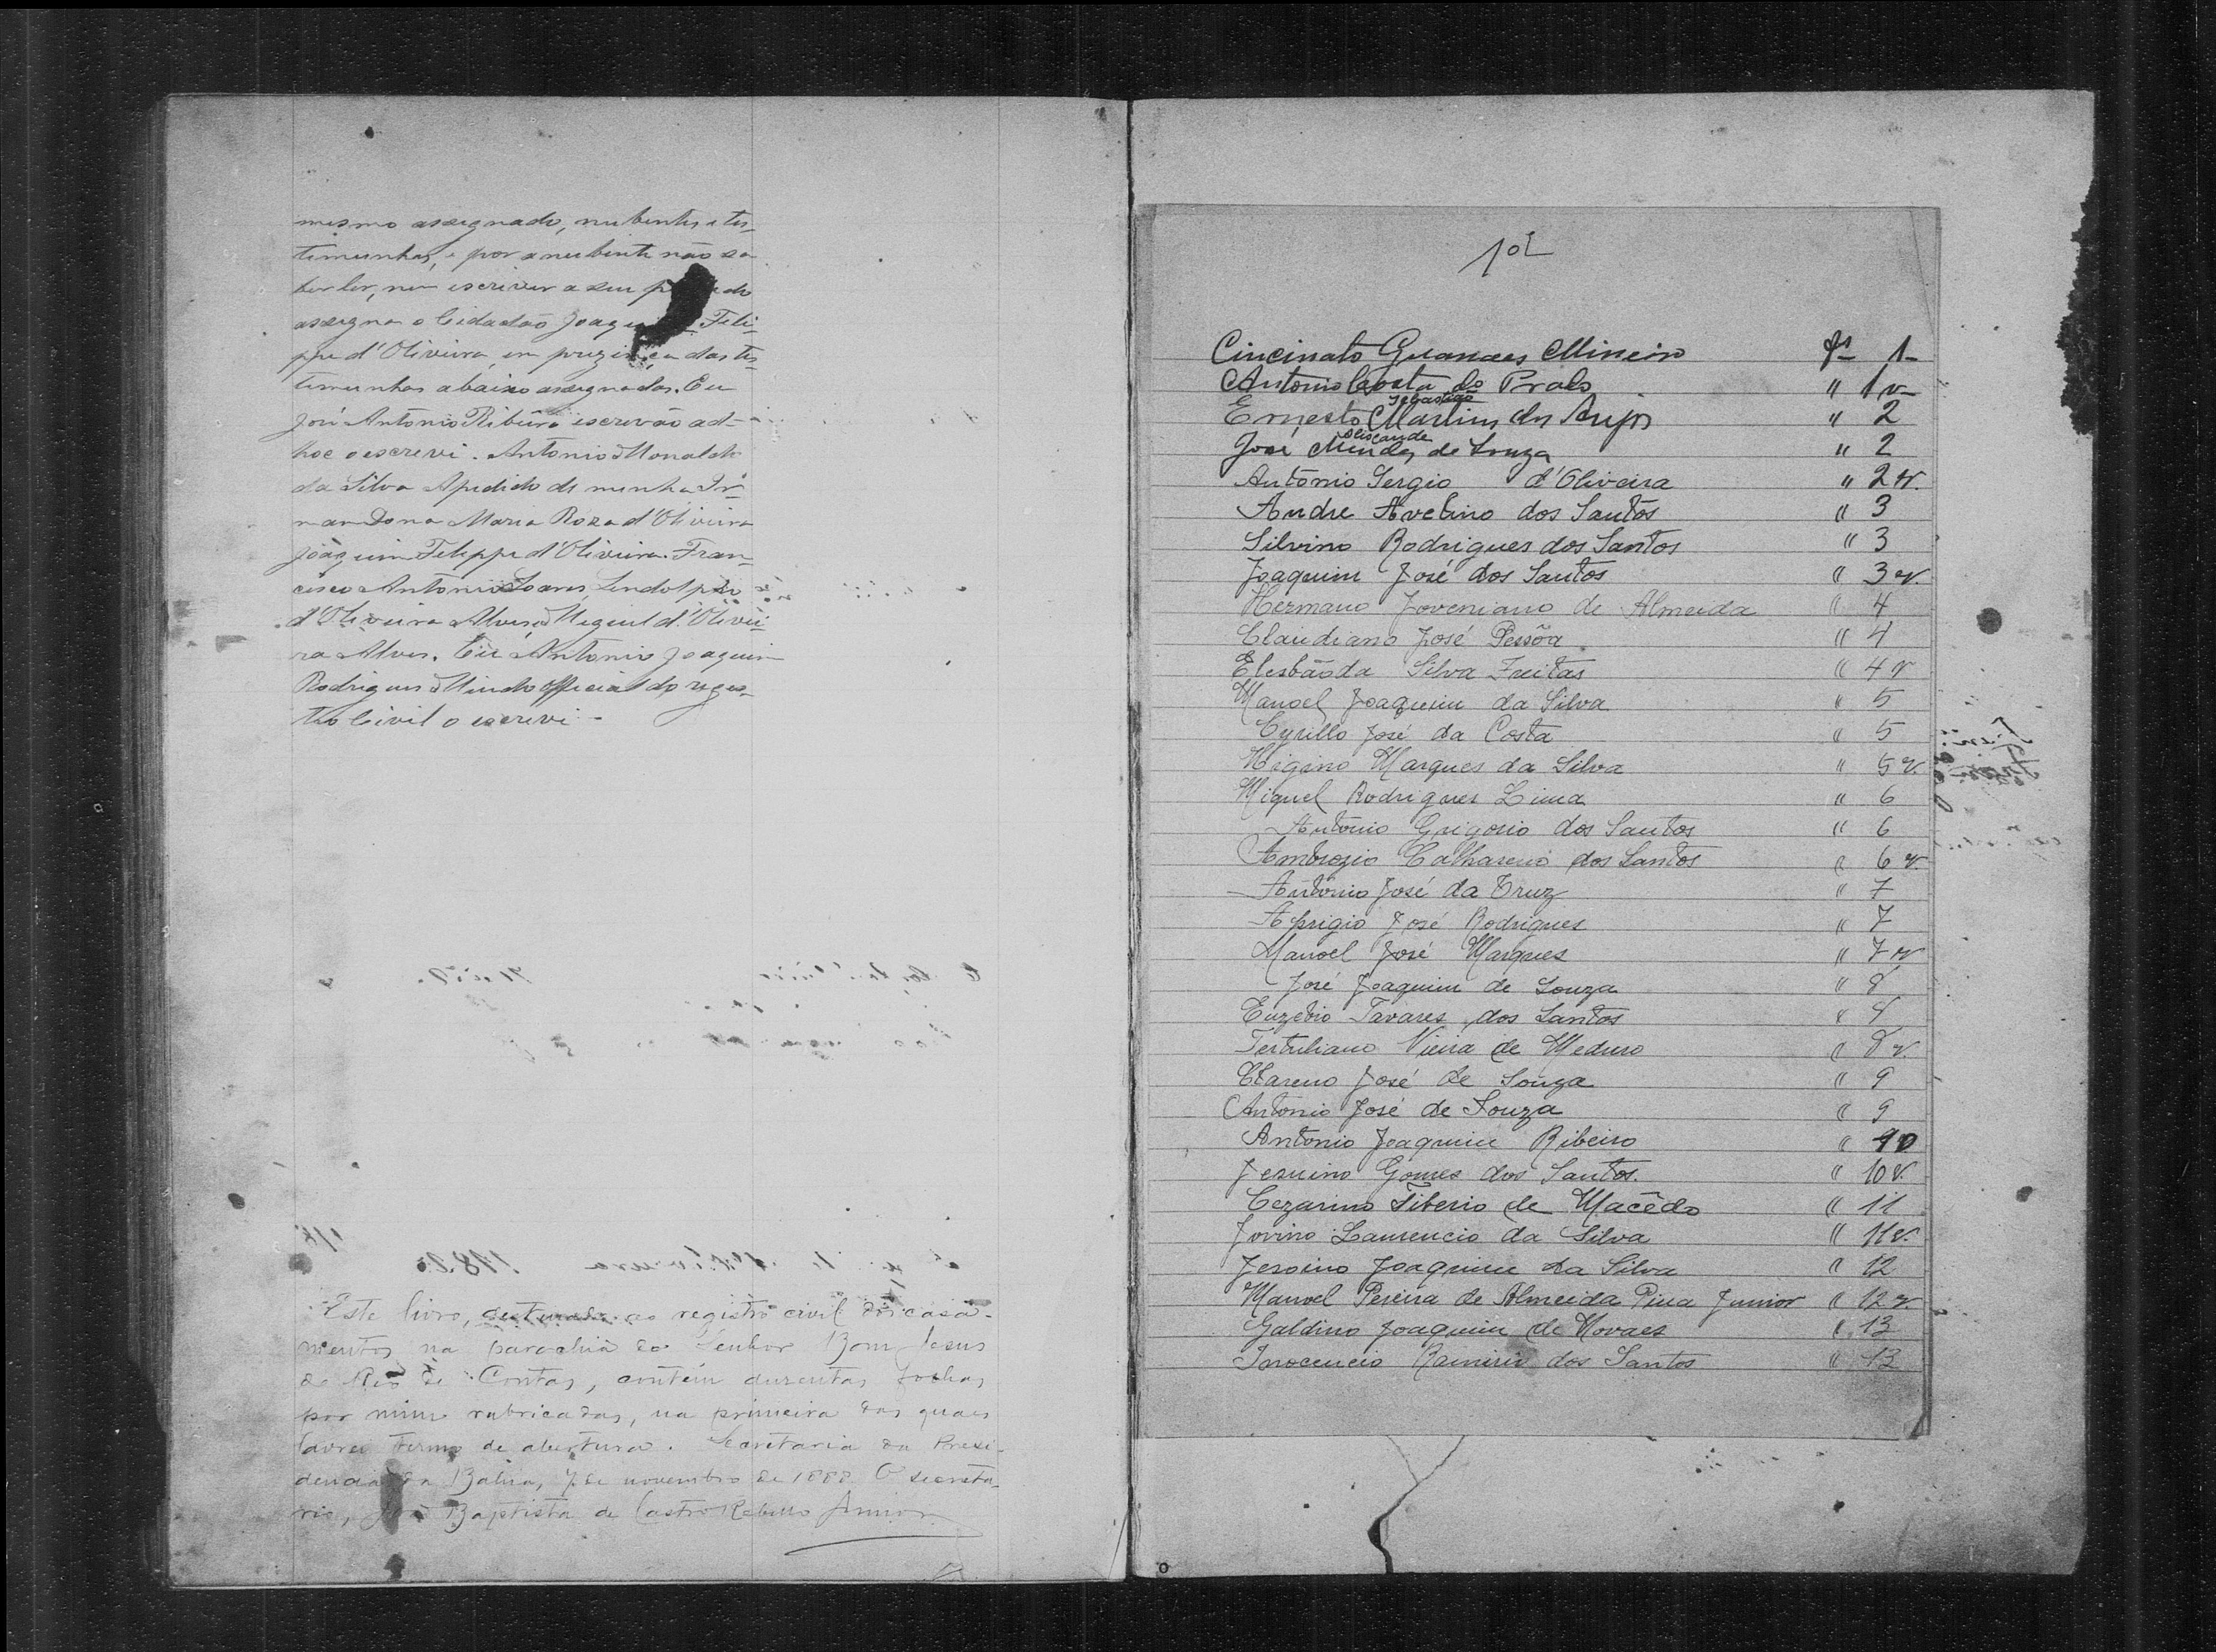 mesmo assignado, nubentes e tes-
timunhas, e por a nubente não sa
ber ler, nem escrever a seu pedido
assigna o Cidadão Joaquim Feli-
ppe d'Oliveira, em prezinça das tes
timunhas abaixo assignadas. Eu
José Antonio Ribeiro escrevão ad-
hoc o escrevi. Antonio Monaldo
da Silva Apedido de minha Ir
man Dona Maria Roza d'Oliveira
Joaquim Felippe d'Oliveira. Fran-
cisco Antonio Soares, Lindolpho
d'Oliveira Alves, Miguel d'Olivei-
ra Alves. Eu Antonio Joaquim
Rodrigues official do regis-
tro Civil o escrevi -
Este livro, destinado ao registro civil dos casa-
mentos na parochia do Senhor Bom Jesus
do Rio de Contas, contém duzentas folhas
por mim rubricadas, na primeira das quaes
lavrei termo de abertura. Secretaria da Presi-
dencia da Bahia, 7 de novembro de 1888 O secreta-
rio, Baptista de Castro Rebello Junior
Cincinato Guanaes Mineiro fs 1
Antonio Costa do Prado " 1v
Ernesto Sebastião Martins dos Anjos " 2
José Mendes de Souza " 2
Antonio Sergio d'Oliveira " 2v.
Andre Avelino dos Santos " 3
Silvino Rodrigues dos Santos " 3
Joaquim José dos Santos " 3v.
Hermano Joveniano de Almeida " 4
Claudiano José Pessôa " 4
Elesbão da Silva Freitas " 4v
Manoel Joaquim da Silva " 5
Cyrillo José da Costa " 5
Higino Marques da Silva " 5v.
Miguel Rodrigues Lima " 6
Antonio Grigorio dos Santos " 6
Ambrozio Calharino dos Santos " 6v.
Antonio José da Cruz " 7
Aprigio José Rodrigues " 7
Manoel José Marques " 7v
José Joaquim de Souza " 8
Euzebio Tavares dos Santos " 8
Tertuliano Vieira de Meduro " 8v.
Clareno José de Souza " 9
Antonio José de Souza " 9
Antonio Joaquim Ribeiro " 9v
Jesuino Gomes dos Santos. " 10v.
Cezarino Tiberio de Macêdo " 11
Jovino Laurencio da Silva " 11v.
Jesoino Joaquim da Silva " 12
Manoel Pereira de Almeida Pina Junior " 12v.
Galdino Joaquim de Novaes " 13
Inocencio Ramiro dos Santos " 13